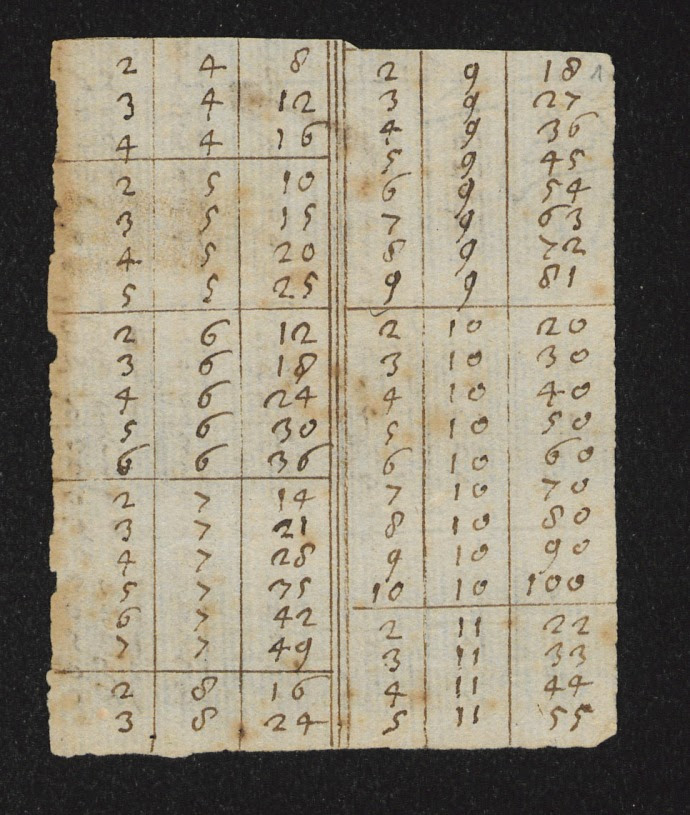 2 4 8
3 4 12
4 4 16
2 5 10
3 5 15
4 5 20
5 5 25
2 6 12
3 6 18
4 6 24
5 6 30
6 6 36
2 7 14
3 7 21
4 7 28
5 7 35
6 7 42
7 7 49
2 8 16
3 8 24
2 9 18
3 9 27
4 9 36
5 9 45
6 9 54
7 9 63
8 9 72
9 9 81
2 10 20
3 10 30
4 10 40
5 10 50
6 10 60
7 10 70
8 10 80
9 10 90
10 10 100
2 11 22
3 11 33
4 11 44
5 11 55